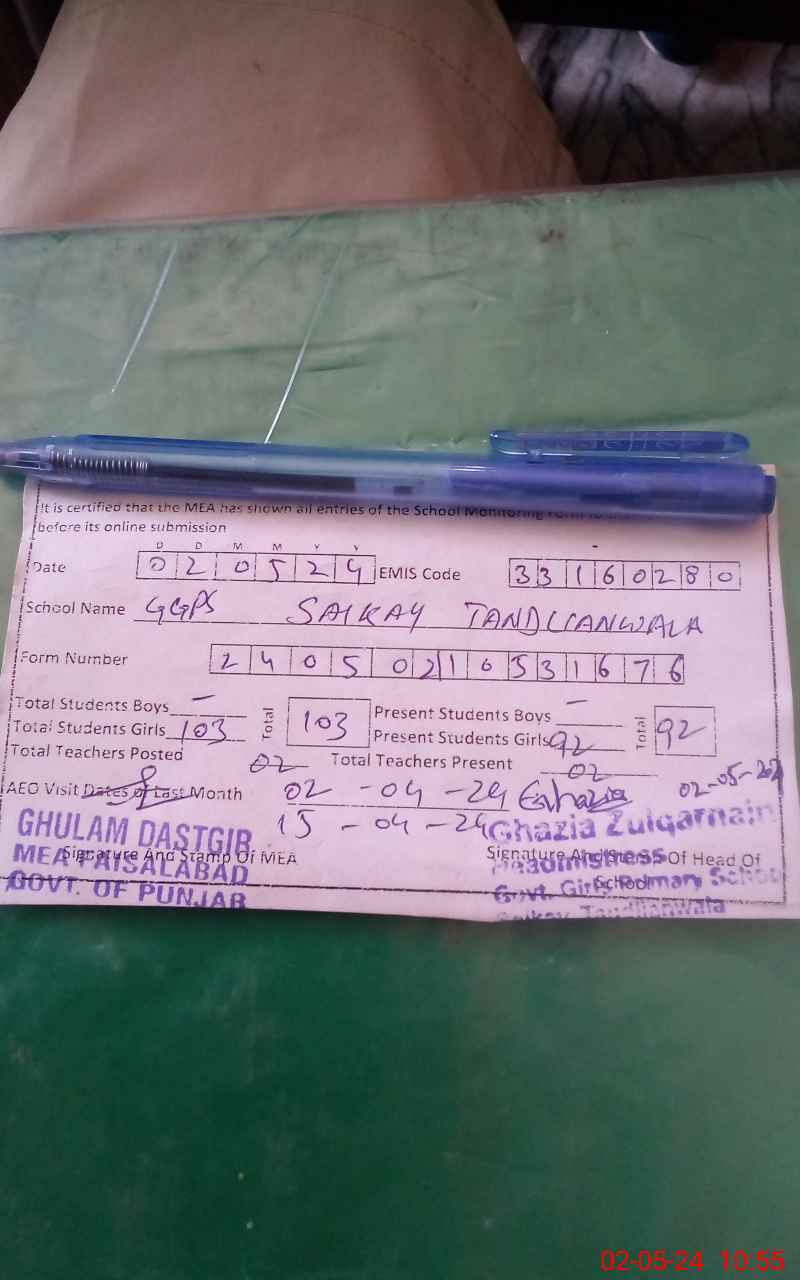 It is certified that the MEA has shown all entries of the School Monitoring Form to
before its online submission
D D M M Y Y
Date 0 2 0 5 2 4 EMIS Code 3 3 1 6 0 2 8 0
School Name GGPS SAIKAY TANDLIANWALA
Form Number 2 4 0 5 0 2 1 0 5 3 1 6 7 6
Total Students Boys — Total 103 Present Students Boys — Total 92
Total Students Girls 103 Present Students Girls 92
Total Teachers Posted 02 Total Teachers Present 02
AEO Visit Dates of Last Month 02-04-24 Ghazia 02-05-202
15-04-24
GHULAM DASTGIR Ghazia Zulqarnain
Signature And Stamp Of MEA Signature And Of Head Of
MEA FAISALABAD Headmistress
School
GOVT. OF PUNJAB Govt. Girls Primary School
Saikay Tandlianwala
02-05-24 10:55